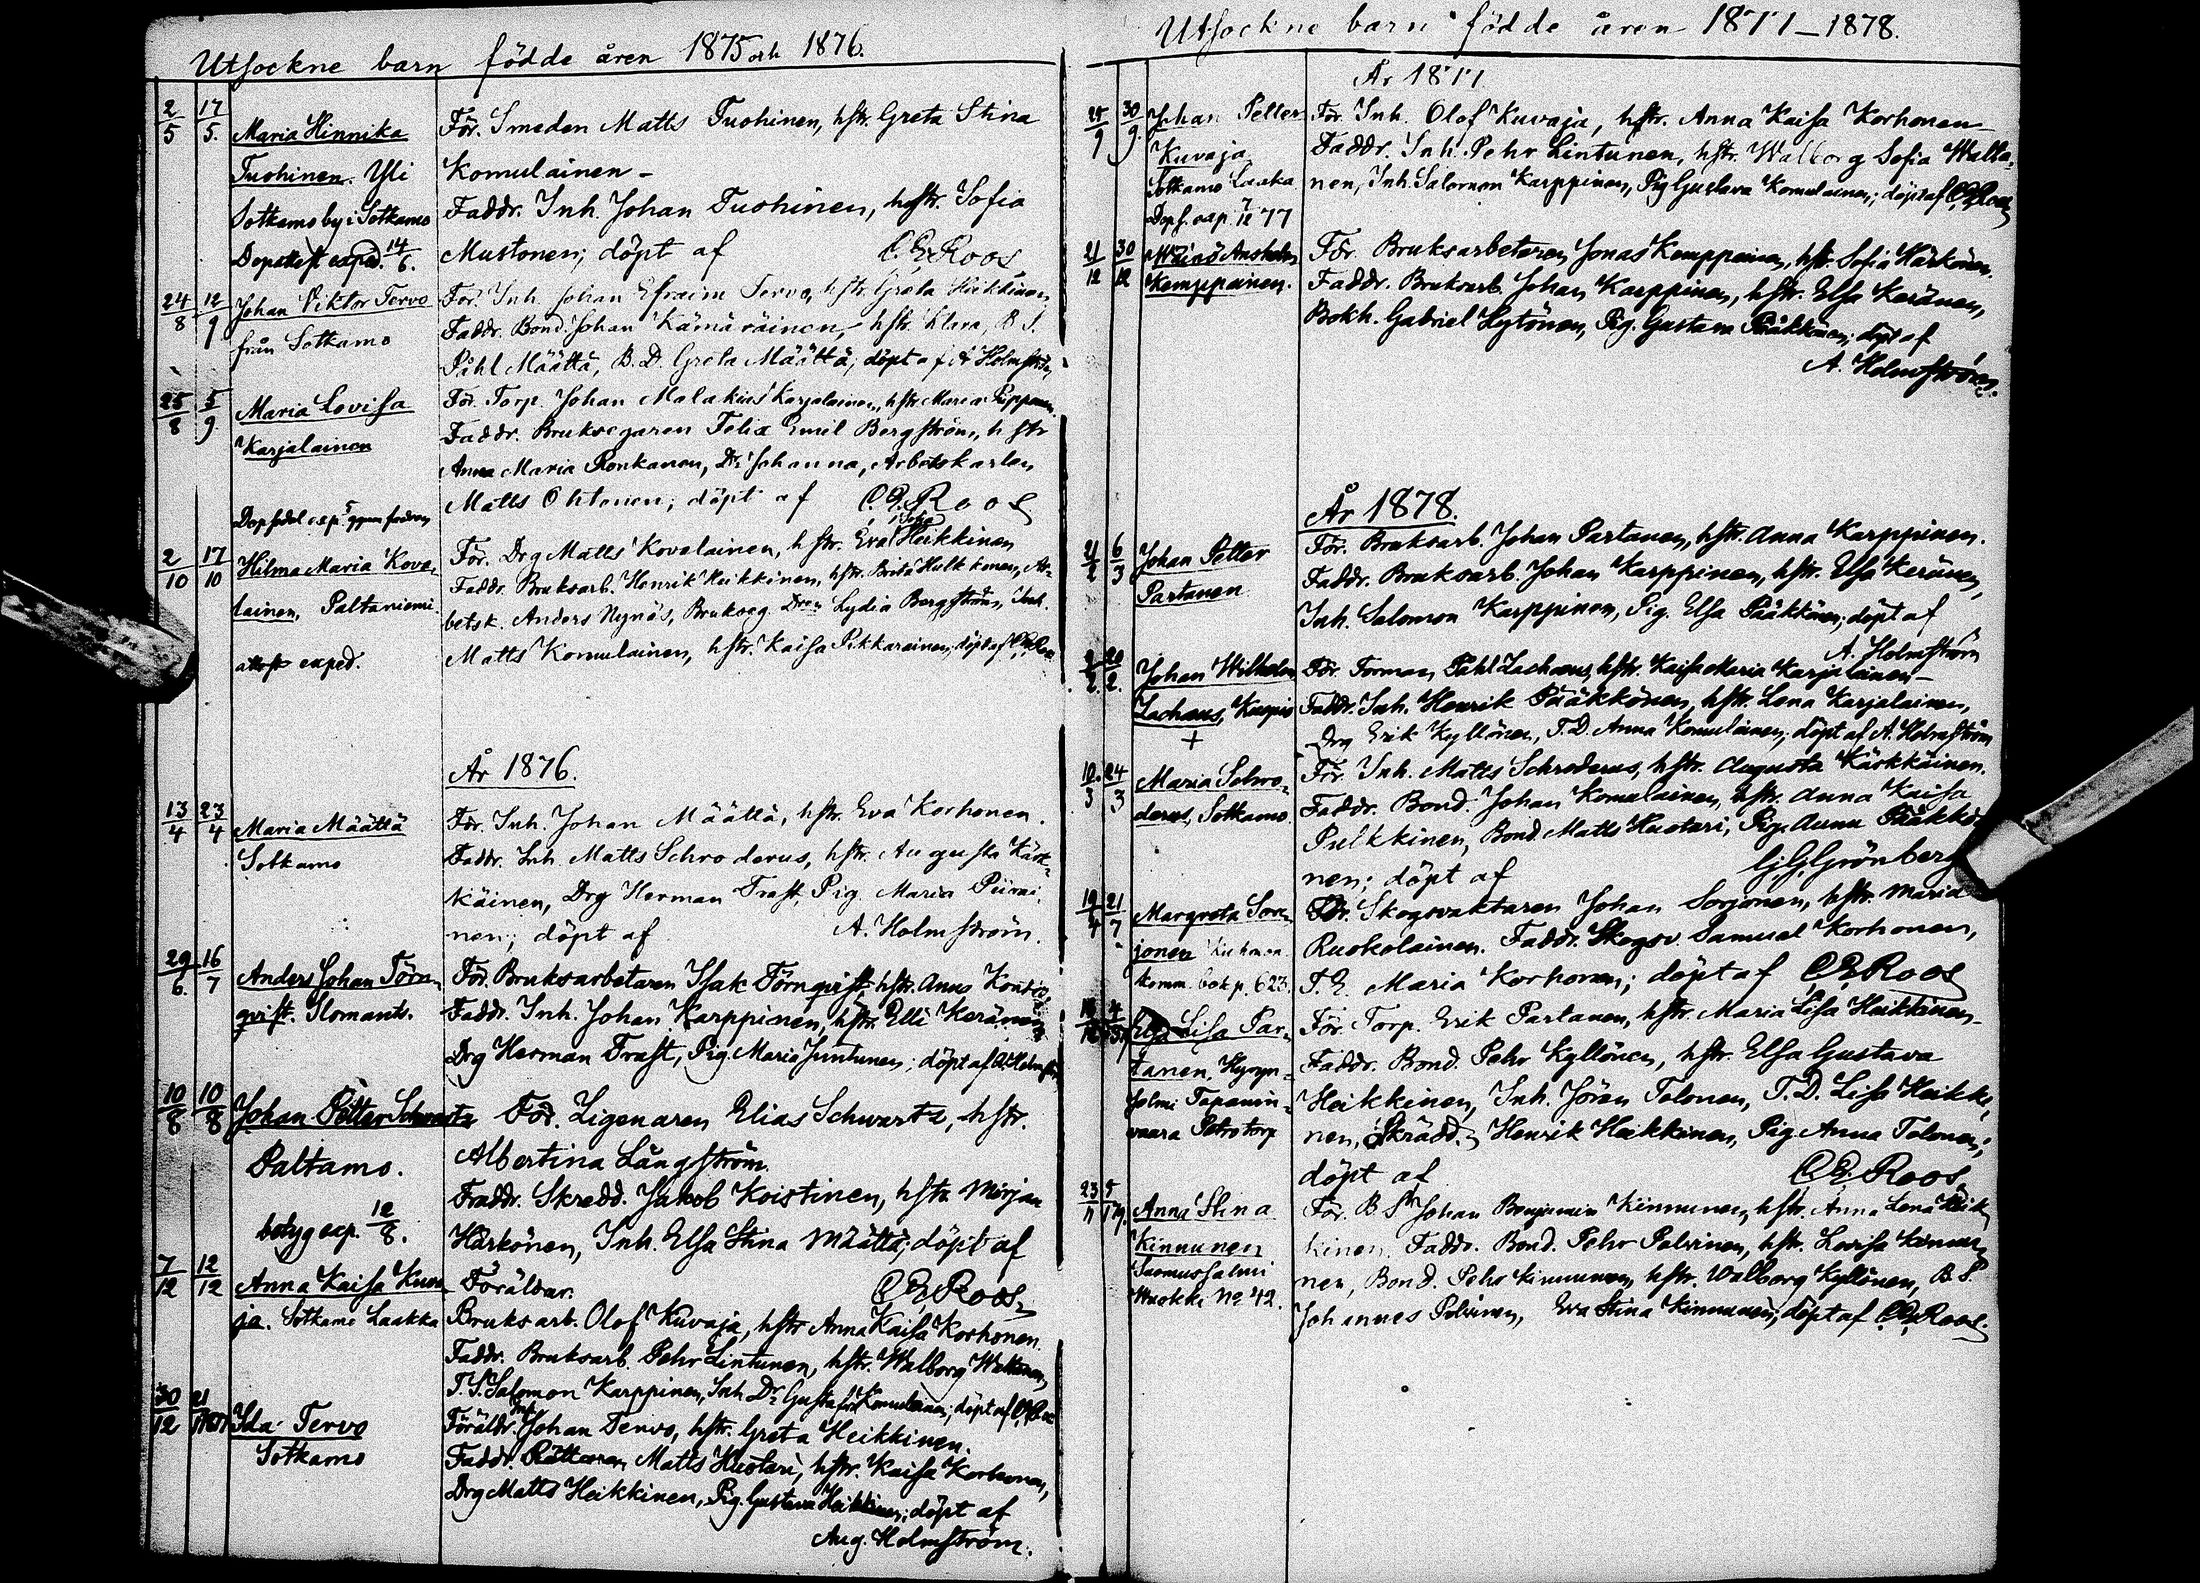 Utsockne barn födde åren 1875 och 1876.
2/5 17/5. Maria Hinnika För. Smeden Matts Tuohinen, hstr. Greta Stina
Tuohinen. Yli Komulainen –
Sotkamo by i Sotkamo Faddr. Inh. Johan Tuohinen, hstr. Sofia
exped. 14/6. Mustonen; döpt af C. E. Roos
24/8 12/9 Johan Viktor Tervo För. Inh. Johan Efraim Tervo, hstr. Greta Heikkinen
från Sotkamo Faddr. Bond. Johan Kämäräinen, hstr. Klara, B. S.
Påhl Määttä, B. D. Greta Määttä; döpt af A Holmström
25/8 5/9 Maria Lovisa För. Torp. Johan Malakias Karjalainen, hstr. Maria
Karjalainen Faddr. Bruksegaren Felix Emil Bergström, hstr
Anna Maria Ronkanen, Dr: Johanna, Arbetskarlen
Matts Ohtonen; döpt af C. E. Roos
2/10 17/10 Hilma Maria Kova- För. Drg Matts Kovalainen, hstr. Eva Heikkinen
lainen, Paltaniemi. Faddr. Bruksarb. Henrik Heikkinen, hstr. Brita Hulkkonen, Ar-
betsk. Anders Nynäs, Brukseg. Dr:n Lydia Bergström, Inh.
attest exped. Matts Komulainen, hstr. Kaisa Pikkarainen; döpt af C. E. Roos
År 1876.
13/4 23/4 Maria Määttä För. Inh. Johan Määttä, hstr. Eva Korhonen.
Sotkamo Faddr. Inh. Matts Schroderus, hstr. Augusta Kärk-
käinen, Drg Herman Trast, Pig. Maria Piirai-
nen; döpt af A. Holmström.
29/6. 16/7 Anders Johan Törn- För. Bruksarbetaren Isak Törnqvist, hstr. Anna
qvist. Ilomants. Faddr. Inh. Johan Karppinen, hstr. Elli Keränen
Drg Herman Trast, Pig. Maria Juntunen; döpt af A. Holmström
10/8 10/8 Johan Petter Schwartz För. Zigenaren Elias Schwartz, hstr.
Paltamo. Albertina Långström.
Faddr. Skredd. Jakob Koistinen, hstr. Mirjam
betyg exp. 12/8. Härkönen, Inh. Elsa Stina Määttä; döpt af
7/12 12/12 Anna Kaisa Kuva- Föräldrar. C. E. Roos
ja. Sotkamo Laakka Bruksarb. Olof Kuvaja, hstr Anna Kaisa Korhonen.
Faddr. Bruksarb. Pehr Lintunen, hstr. Walborg Waltanen,
T. S. Salomon Karppinen, Inh Dr: Gustafva Komulainen; döpt af C. E. Roos
30/12 21/1 1877 Ida Tervo Föräldr. Inh Johan Tervo, hstr. Greta Heikkinen.
Sotkamo Faddr. Rättaren Matts Huotari, hstr. Kaisa Korhonen,
Drg Matts Heikkinen, Pig. Gustava Heikkinen; döpt af
Aug. Holmström.
Utsockne barn födde åren 1877–1878.
År 1877
25/9 30/9. Johan Petter För. Inh. Olof Kuvaja, hstr. Anna Kaisa Korhonen –
Kuvaja Faddr. Inh. Pehr Lintunen, hstr. Walborg Sofia Walta-
Sotkamo Laaka nen, Inh. Salomon Karppinen, Pig Gustava Komulainen; döpt af C. E. Roos
77
21/12 30/12 Anshelm För. Bruksarbetaren Jonas Kemppainen, hstr. Sofia Härkönen.
Kemppainen. Faddr. Bruksarb. Johan Karppinen, hstr. Elsa Keränen,
Bokh. Gabriel Hytönen, Pig. Gustava Pääkkönen; döpt af
A. Holmström.
År 1878.
21/2 6/3 Johan Petter För. Bruksarb. Johan Partanen, hstr. Anna Karppinen.
Partanen Faddr. Bruksarb. Johan Karppinen, hstr. Elsa Keränen,
Inh. Salomon Karppinen, Pig. Elsa Pääkkönen; döpt af
A. Holmström
2/2. 20/2. Johan Wilhelm För. Forman Påhl Zachæus, hstr. Kaisa Maria Karjalainen –
Zachæus, Kuopio Faddr. Inh. Henrik Pääkkönen, hstr. Lena Karjalainen,
+ Drg Erik Kyllönen, T. D. Anna Komulainen; döpt af A. Holmström
10/3 24/3 Maria Schro- För. Inh. Matts Schroderus, hstr. Augusta Kärkkäinen.
derus, Sotkamo Faddr. Bond. Johan Komulainen, hstr. Anna Kaisa
Pulkkinen, Bond. Matts Huotari, Pig. Anna Pääkkö-
nen; döpt af G. G. Grönberg
19/4 21/7 Margreta Sor- För. Skogsvaktaren Johan Sorjonen, hstr. Maria
jonen Kuhmon Ruokolainen. Faddr. Skogsv. Samuel Korhonen,
komm. bok p. 623. T. E. Maria Korhonen; döpt af C. E. Roos
Elsa Lisa Par- För. Torp. Erik Partanen, hstr. Maria Lisa Heikkinen –
tanen, Hyryn- Faddr. Bond. Pehr Kyllönen, hstr. Elsa Gustava
solmi Tapanin- Heikkinen, Inh. Jöran Tolonen, T. D. Lisa Heikki-
vaara Petro torp nen, Skrädd. Henrik Heikkinen, Pig Anna Tolonen;
döpt af C. E. Roos
23/11 5/1 79. Anna Stina För. B. S:n Johan Benjamin Kinnunen, hstr. Anna Lena Heik-
Kinnunen kinen. Faddr. Bond. Pehr Polvinen, hstr. Lovisa Kinnu-
Suomussalmi nen, Bond. Pehr Kinnunen, hstr. Walborg Kyllönen, B. S.
Wuokki No 42. Johannes Polvinen, Eva Stina Kinnunen; döpt af C. E. Roos.